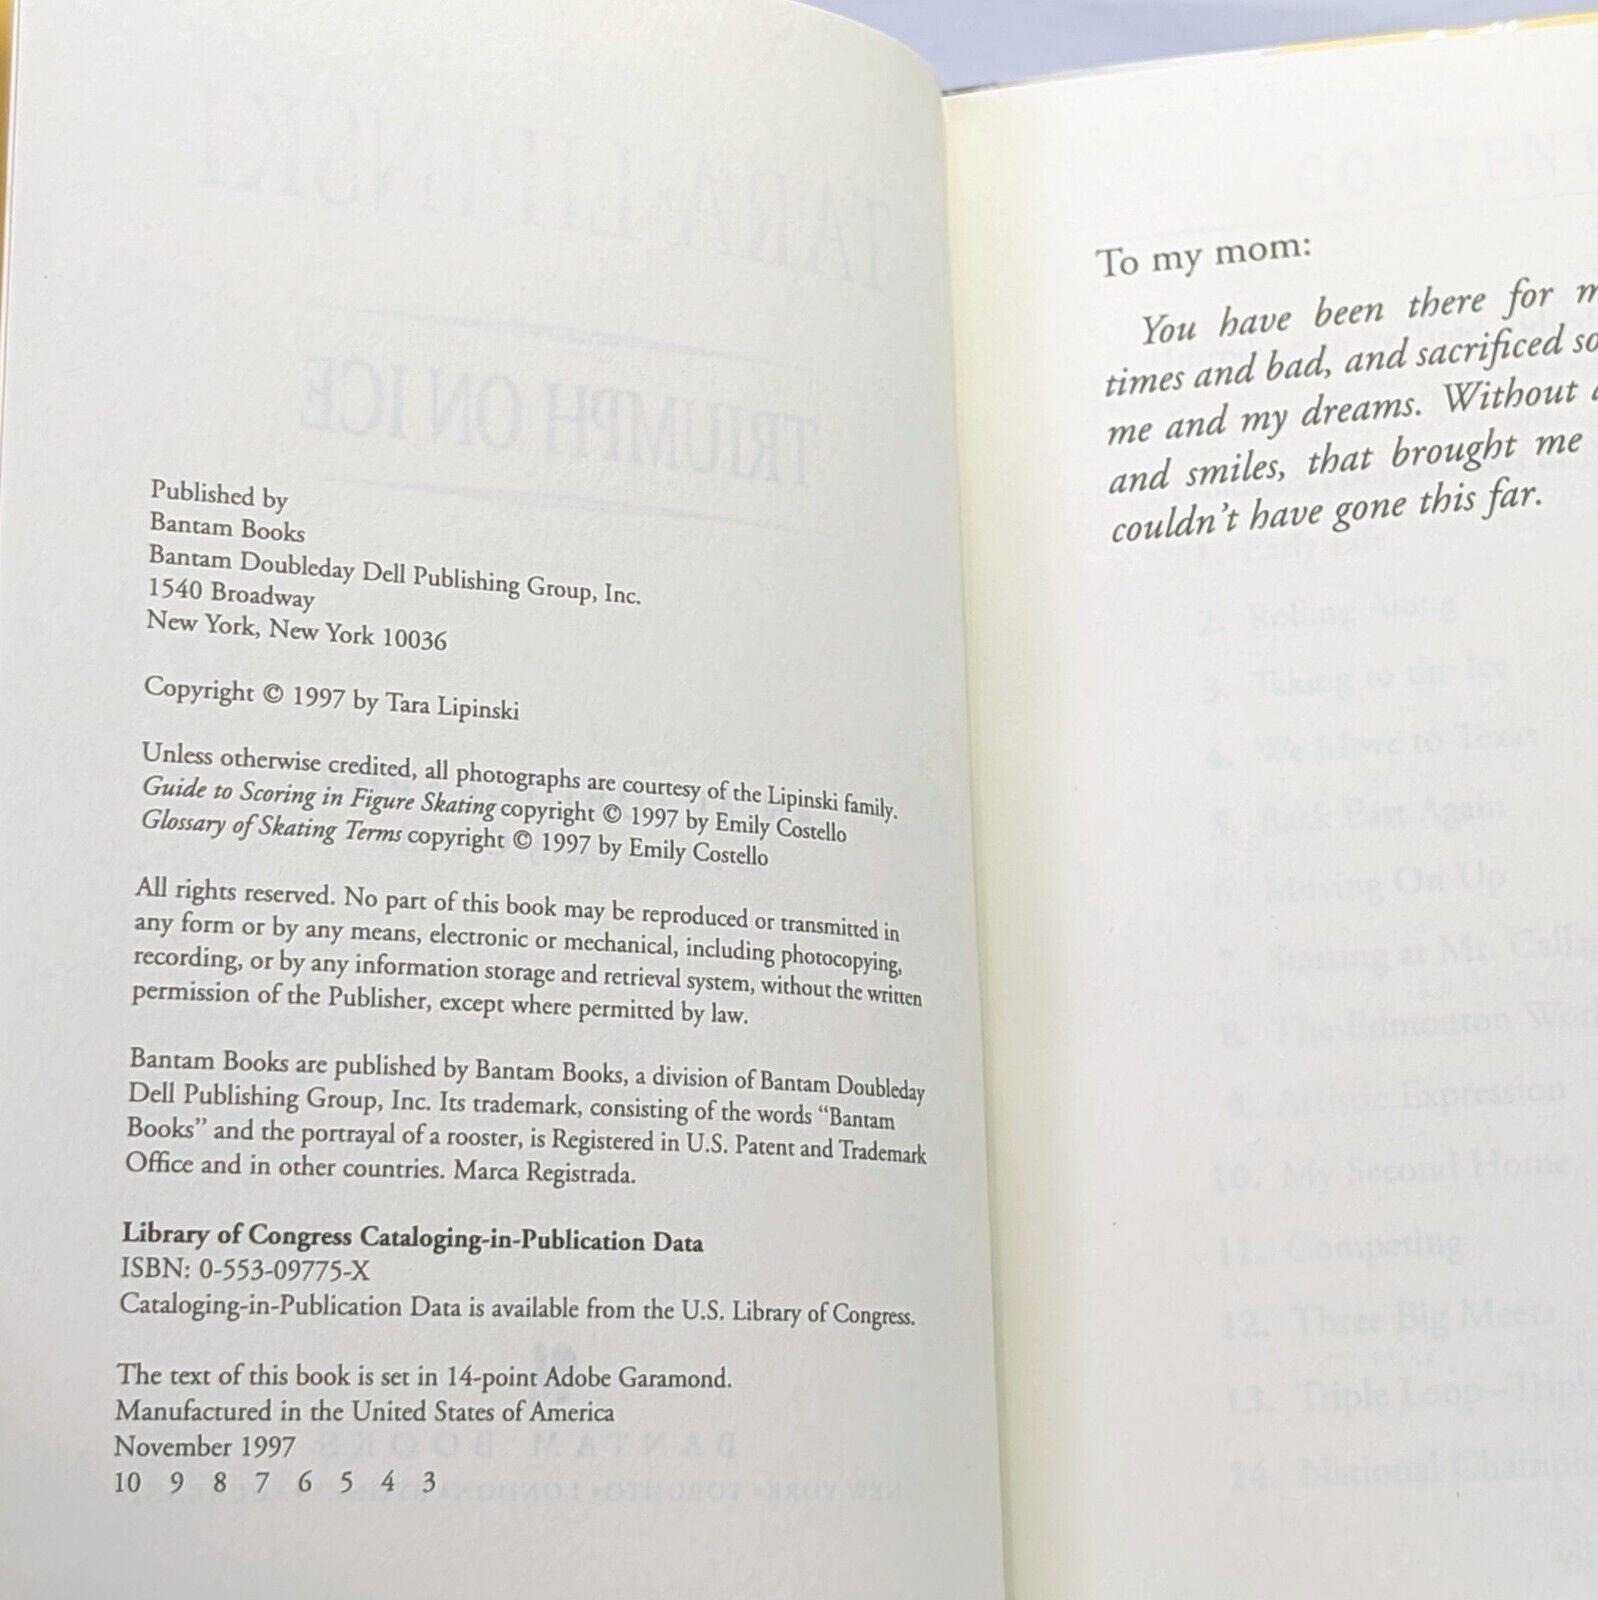 Published by
Bantam Books
Bantam Doubleday Dell Publishing Group, Inc.
1540 Broadway
New York, New York 10036
Copyright © 1997 by Tara Lipinski
Unless otherwise credited, all photographs are courtesy of the Lipinski family.
Guide to Scoring in Figure Skating copyright © 1997 by Emily Costello
Glossary of Skating Terms copyright © 1997 by Emily Costello
All rights reserved. No part of this book may be reproduced or transmitted in
any form or by any means, electronic or mechanical, including photocopying,
recording, or by any information storage and retrieval system, without the written
permission of the Publisher, except where permitted by law.
Bantam Books are published by Bantam Books, a division of Bantam Doubleday
Dell Publishing Group, Inc. Its trademark, consisting of the words “Bantam
Books” and the portrayal of a rooster, is Registered in U.S. Patent and Trademark
Office and in other countries. Marca Registrada.
Library of Congress Cataloging-in-Publication Data
ISBN: 0-553-09775-X
Cataloging-in-Publication Data is available from the U.S. Library of Congress.
The text of this book is set in 14-point Adobe Garamond.
Manufactured in the United States of America
November 1997
10 9 8 7 6 5 4 3
To my mom:
You have been there for
times and bad, and sacrificed so
me and my dreams. Without
and smiles, that brought me
couldn’t have gone this far.
TARA LIPINSKI
TRIUMPH ON ICE
BANTAM BOOKS
2. Rolling Along
3. Taking to the Ice
4. We Move to Texas
5. Back East Again
6. Moving On Up
8. The Edmonton
9. Artistic Expression
10. My Second Home
11. Competing
12. Three Big Meets
13. Triple Loop–Triple
14. National
vii